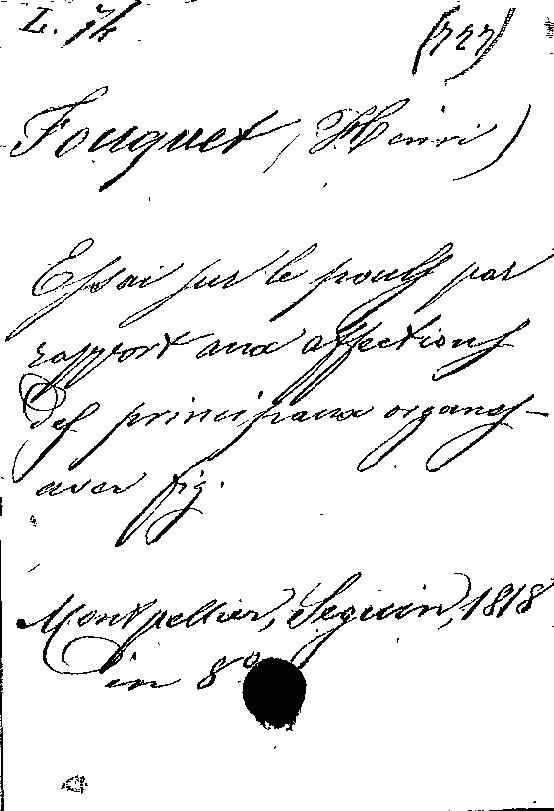 L. 74 (727)
Fouquet (Henri)
Essai sur le pouls par
rapport aux affections
des principaux organes –
avec fig.
Montpellier, Seguin, 1818
in 8º